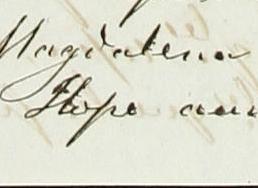 Magdalena
Hope